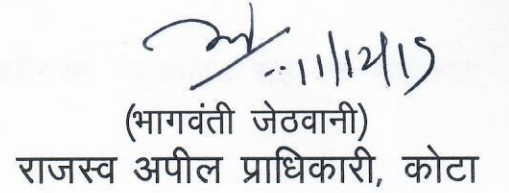 11/12/15
(भागवंती जेठवानी)
राजस्व अपील प्राधिकारी, कोटा